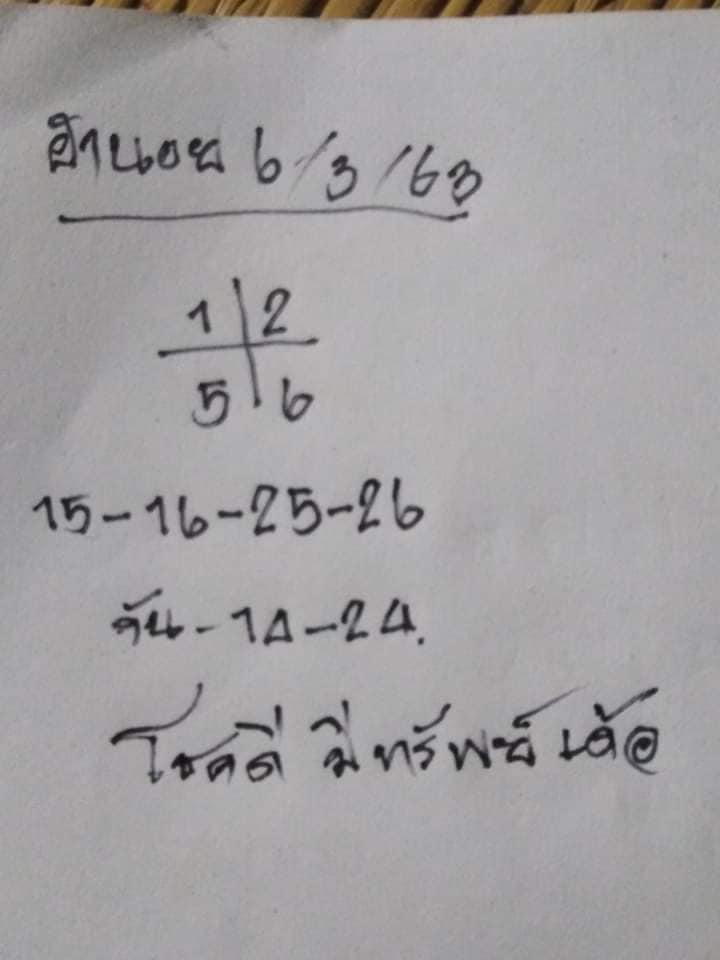 ฮานอย 6/3/63
1 2
5 6
15-16-25-26
กัน-14-24.
โชคดี มีทรัพย์ เด้อ